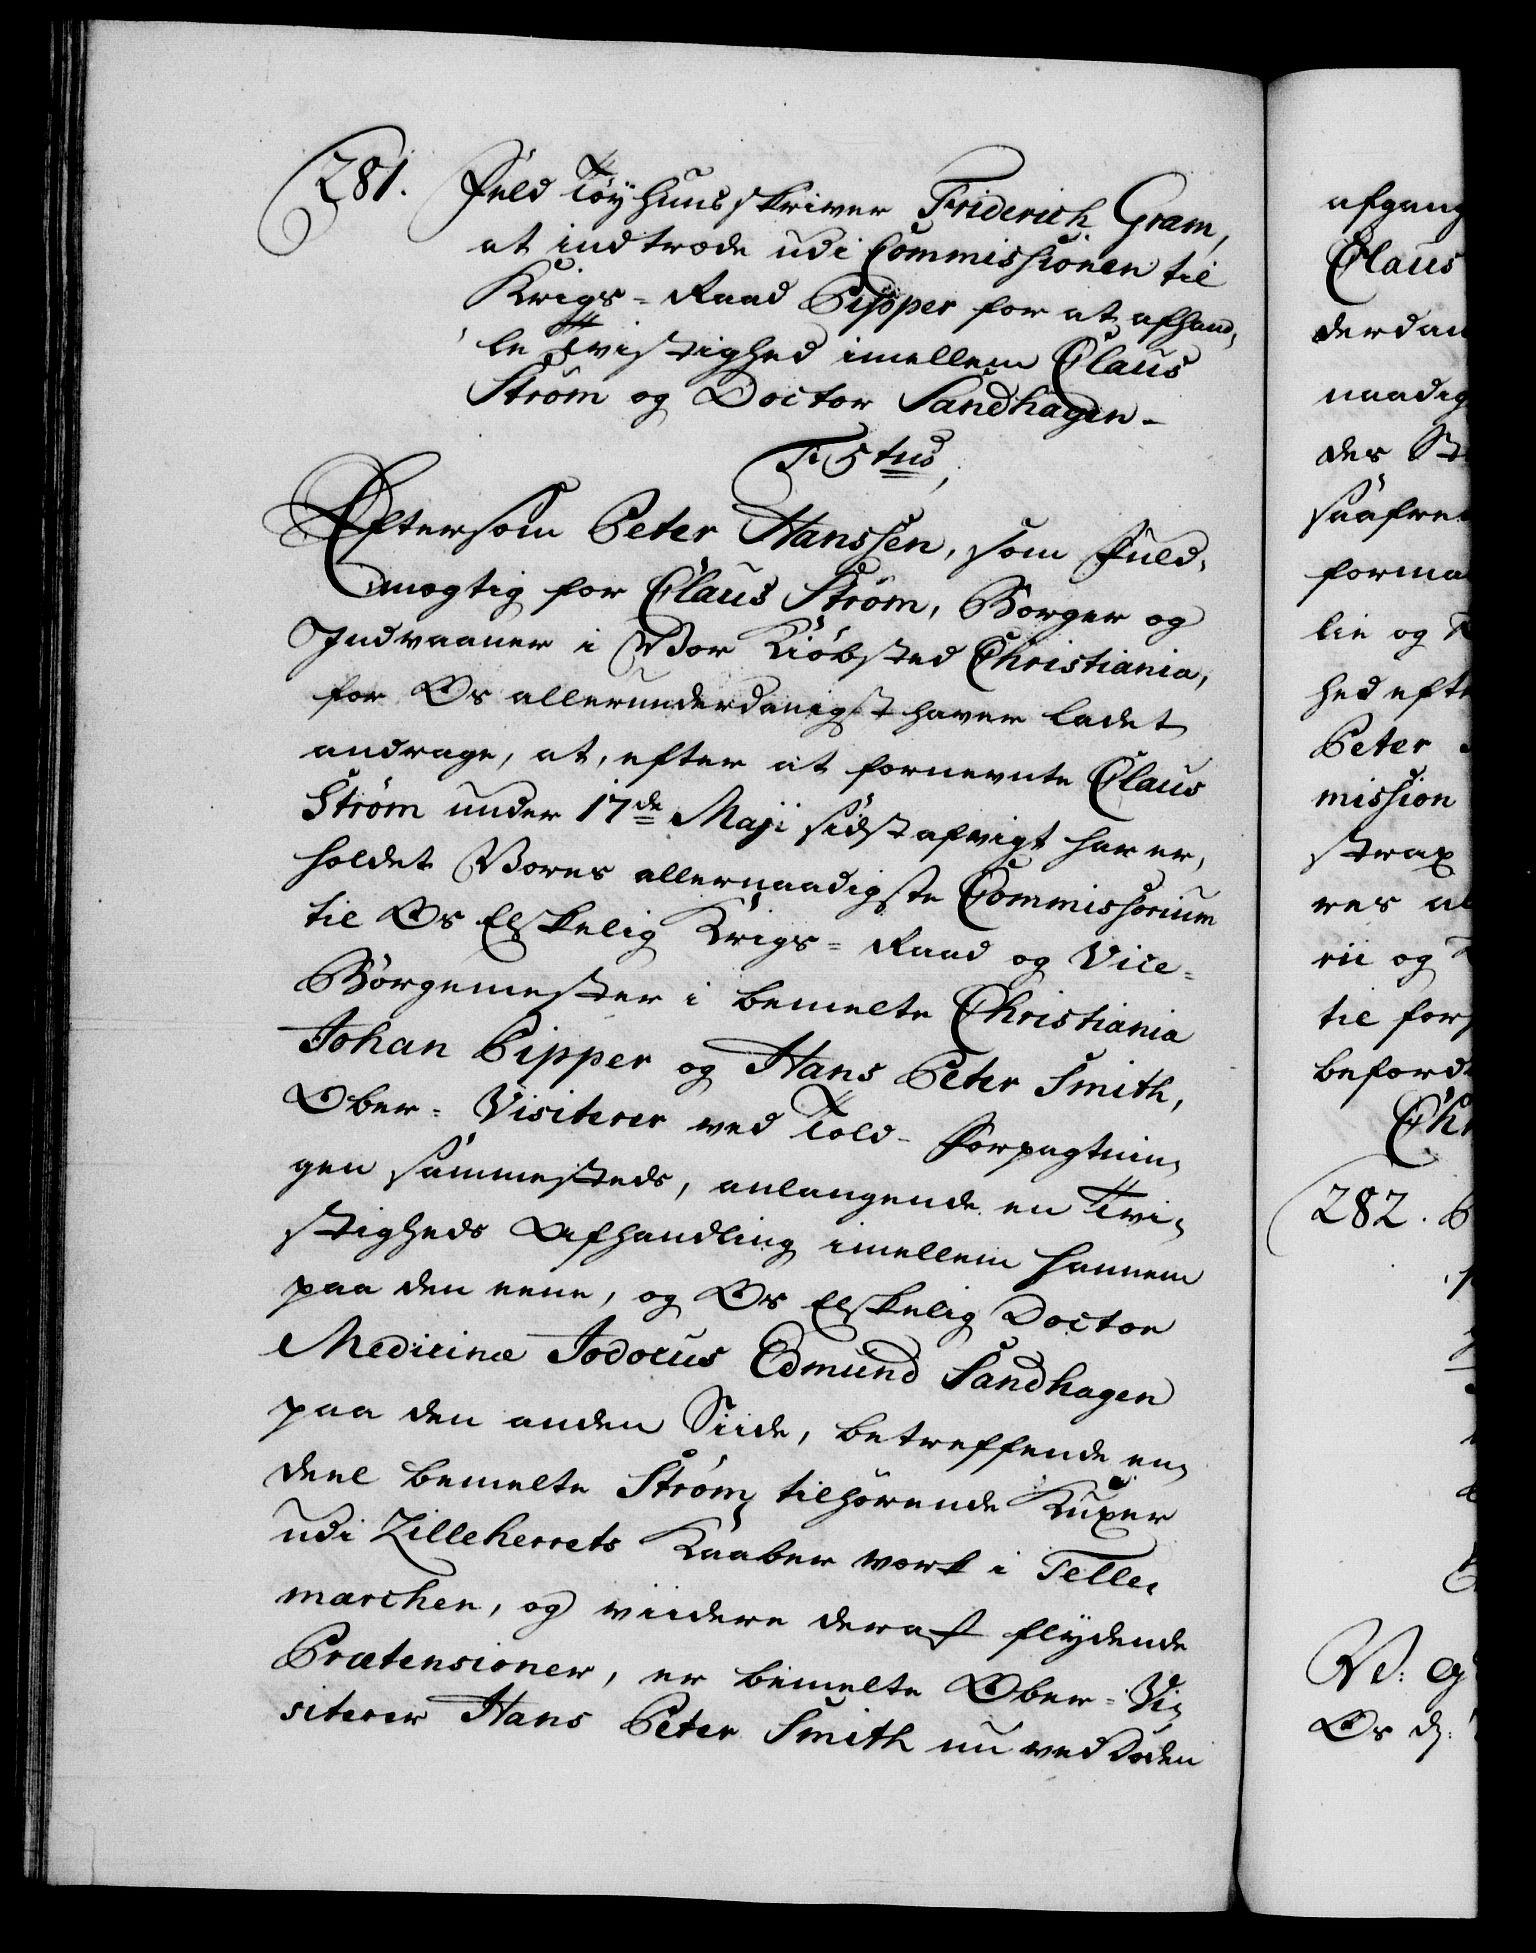 281. Fuld Tøyhuusskriver Friderich Gram,
at indtræde udi Commissionen til
Krigs-Raad Pipper for at afhand,
le Tvistighed imellem Claus
Strøm og Doctor Sandhagen -
F 5tus,
Eftersom Peter Hanssen, som Fuld,
mægtig for Claus Strøm, Borger og
Indvaaner i Vor Kiøbsted Christiania,
for Os allerunderdanigst haver ladet
andrage, at, efter at fornevnte Claus
Strøm under 17de Maji sidst afvigt har er,
holdet Vores allernaadigste Commissorium
til Os Elskelig Krigs-Raad og Vice-
Borgemester i bemelte Christiania
Johan Pipper og Hans Peter Smith,
Ober-Visiterer ved Told-Forpagtnin,
gen sammesteds, anlangende en Tvi,
stigheds Afhandling imellem hannem
paa den eene, og Os Elskelig Doctor
Medicinæ Jodocus Edmund Sandhagen
paa den anden Siide, betreffende en,
deel bemelte Strøm tilhørende Kuxer
udi Zilleherrets Kaaberverk i Telle,
marchen, og viidere deraf flydende
Prætensioner, er bemelte Ober-Vi,
siterer Hans Peter Smith nu ved Døden
afgang
Claus
derdan
naadig
des St
saafre
forma
lie og
hed efte
Peter
mission
strax
res al
rii og
til for
beford
Ch
282.
Os